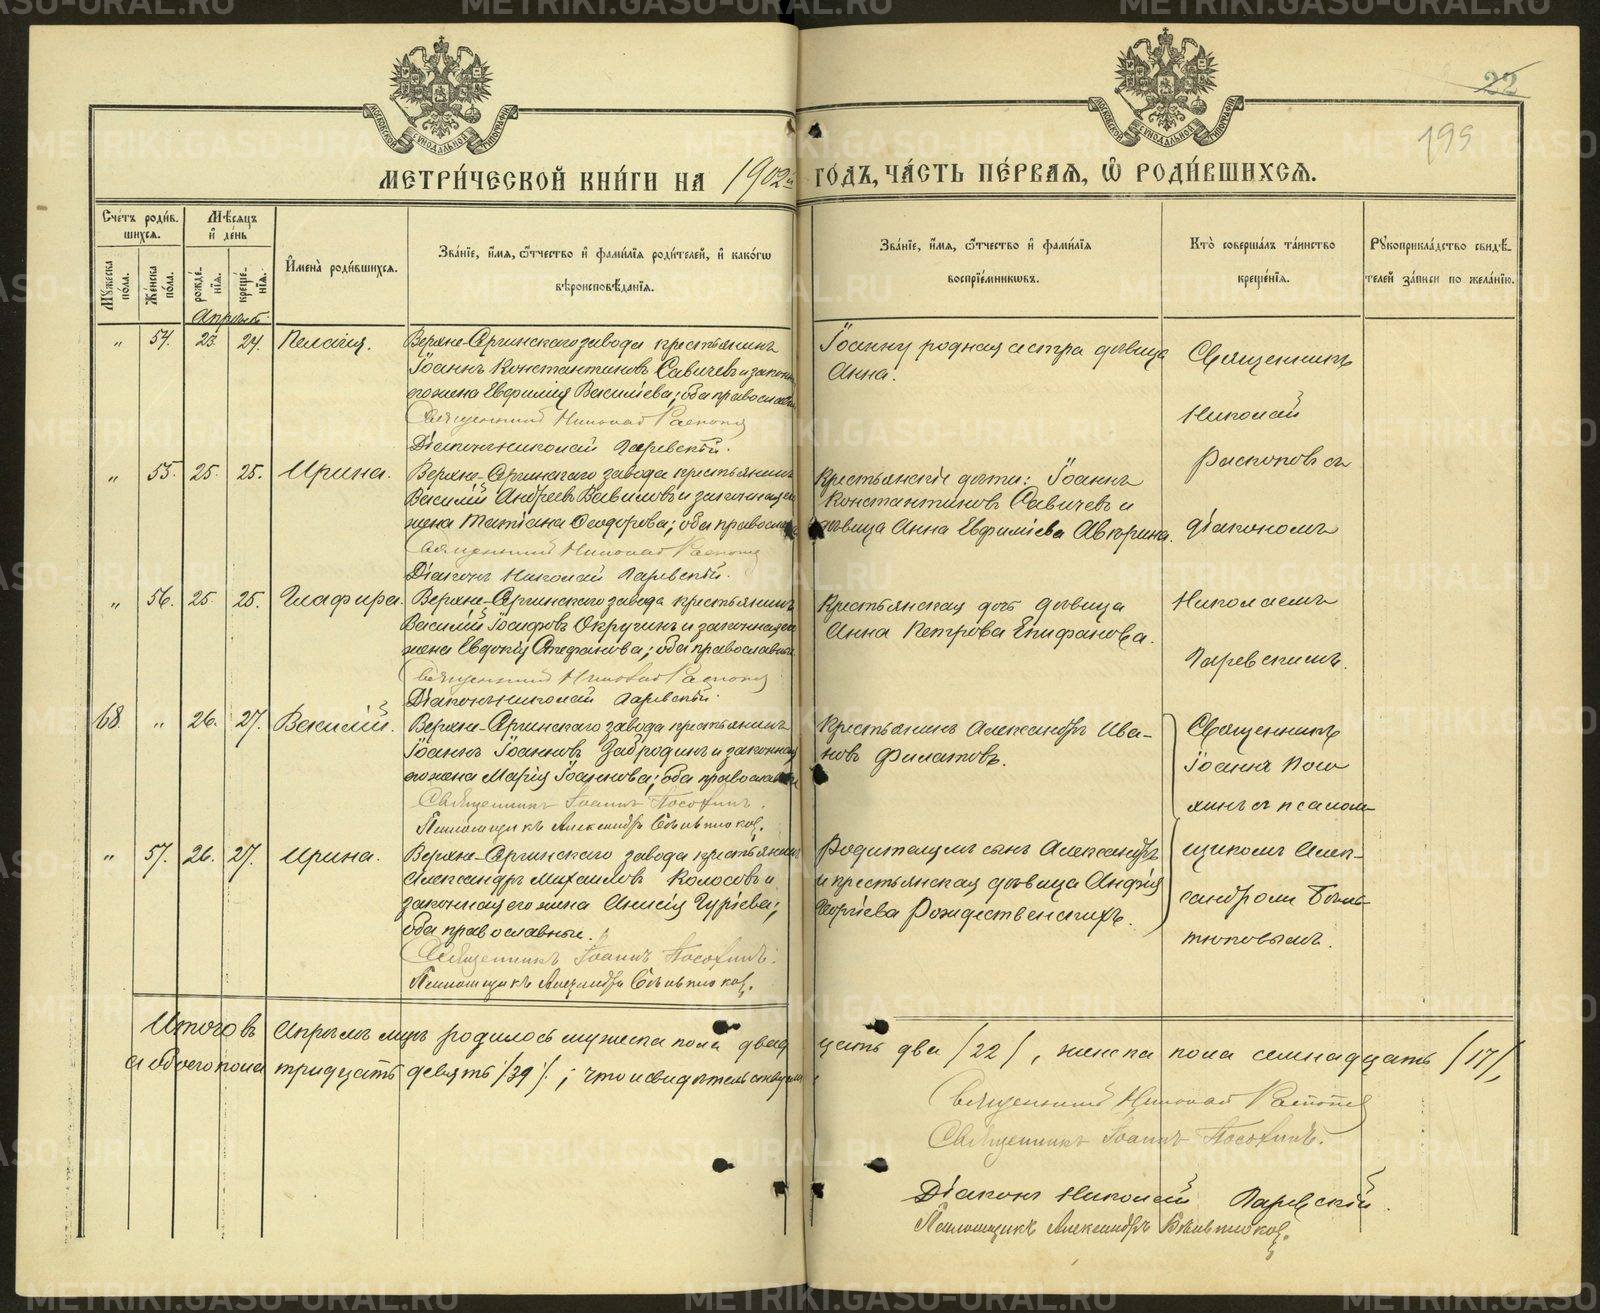 22
199
МОСКОВСКОЙ СѴНОДАЛЬНОЙ ТИПОГРАФІИ
МОСКОВСКОЙ СѴНОДАЛЬНОЙ ТИПОГРАФІИ
МЕТРИ́ЧЕСКОЙ КНИ́ГИ НА 1902й ГОДЪ, ЧА́СТЬ ПЕ́РВАЯ, Ѡ РОДИ́ВШИХСЯ.
Сче́тъ роди́вшихся.
Му́жеска по́ла.
Же́нска по́ла.
Мѣ́сяцъ и де́нь
рожде́нія.
креще́нія.
Имена̀ роди́вшихся.
Зва́ніе, и́мя, ѻ҆́тчество и фами́лія роди́телей, и како́гѡ вѣроисповѣ́данія.
Зва́ніе, и́мя, ѻ҆́тчество и фами́лія воспріе́мниковъ.
Кто̀ соверша́лъ та́инство креще́нія.
Рукоприкла́дство свидѣ́телей за́писи по жела́нію.
Апрѣль
" 54. 23 24. Пелагія.
Верхне-Сергинскаго завода крестьянинъ
Іоаннъ Константиновъ Савичевъ и законн
его жена Евфимія Васильева; оба православн
Священникъ Николай
Діаконъ Николай Паревскій.
Іоанну родная сестра дѣвица
Анна.
Священникъ
Николай
Располовъ съ
діакономъ
Николаемъ
Паревскимъ.
" 55. 25. 25. Ирина.
Верхне-Сергинскаго завода крестьянинъ
Василій Андреевъ Вавиловъ и законная ея
жена Татіана Ѳеодорова; оба православ
Священникъ Николай
Діаконъ Николай Паревскій.
Крестьянскіе дѣти: Іоаннъ
Константиновъ Савичевъ и
дѣвица Анна Евфиміева
" 56. 25. 25. Глафира.
Верхне-Сергинскаго завода крестьянинъ
Василій Іосифовъ Окручинъ и законная ея
жена Евдокія Стефанова; оба православные
Священникъ Николай
Діаконъ Николай Паревскій.
Крестьянская дочь дѣвица
Анна Петрова Епифанова.
68. " 26. 27. Василій.
Верхне-Сергинскаго завода крестьянинъ
Іоаннъ Іоанновъ Забродинъ и законная
его жена Марія Іоаннова; оба православн
Священникъ Іоаннъ Посохинъ.
Псаломщикъ Александръ
Крестьянинъ Александръ Ива-
новъ Филатовъ.
Священникъ
Іоаннъ Посо-
хинъ съ псалом-
щикомъ Алек-
сандромъ
" 57. 26. 27. Ирина.
Верхне-Сергинскаго завода крестьянинъ
Александръ Михаиловъ Колосовъ и
законная его жена Анисія Гуріева;
оба православные.
Священникъ Іоаннъ Посохинъ.
Псаломщикъ Александръ
Родителямъ сынъ Александръ
и крестьянская дѣвица Анфія
Георгіева Рождественскихъ.
Итого въ Апрѣлѣ мцѣ родилось мужеска пола двад цать два /22/, женска пола семнадцать /17/,
а обоего пола тридцать девять /39/; что и свидѣтельствуемъ:
Священникъ Николай
Священникъ Іоаннъ Посохинъ.
Діаконъ Николай Паревскій.
Псаломщикъ Александръ
METRIKI.GASO-URAL.RU